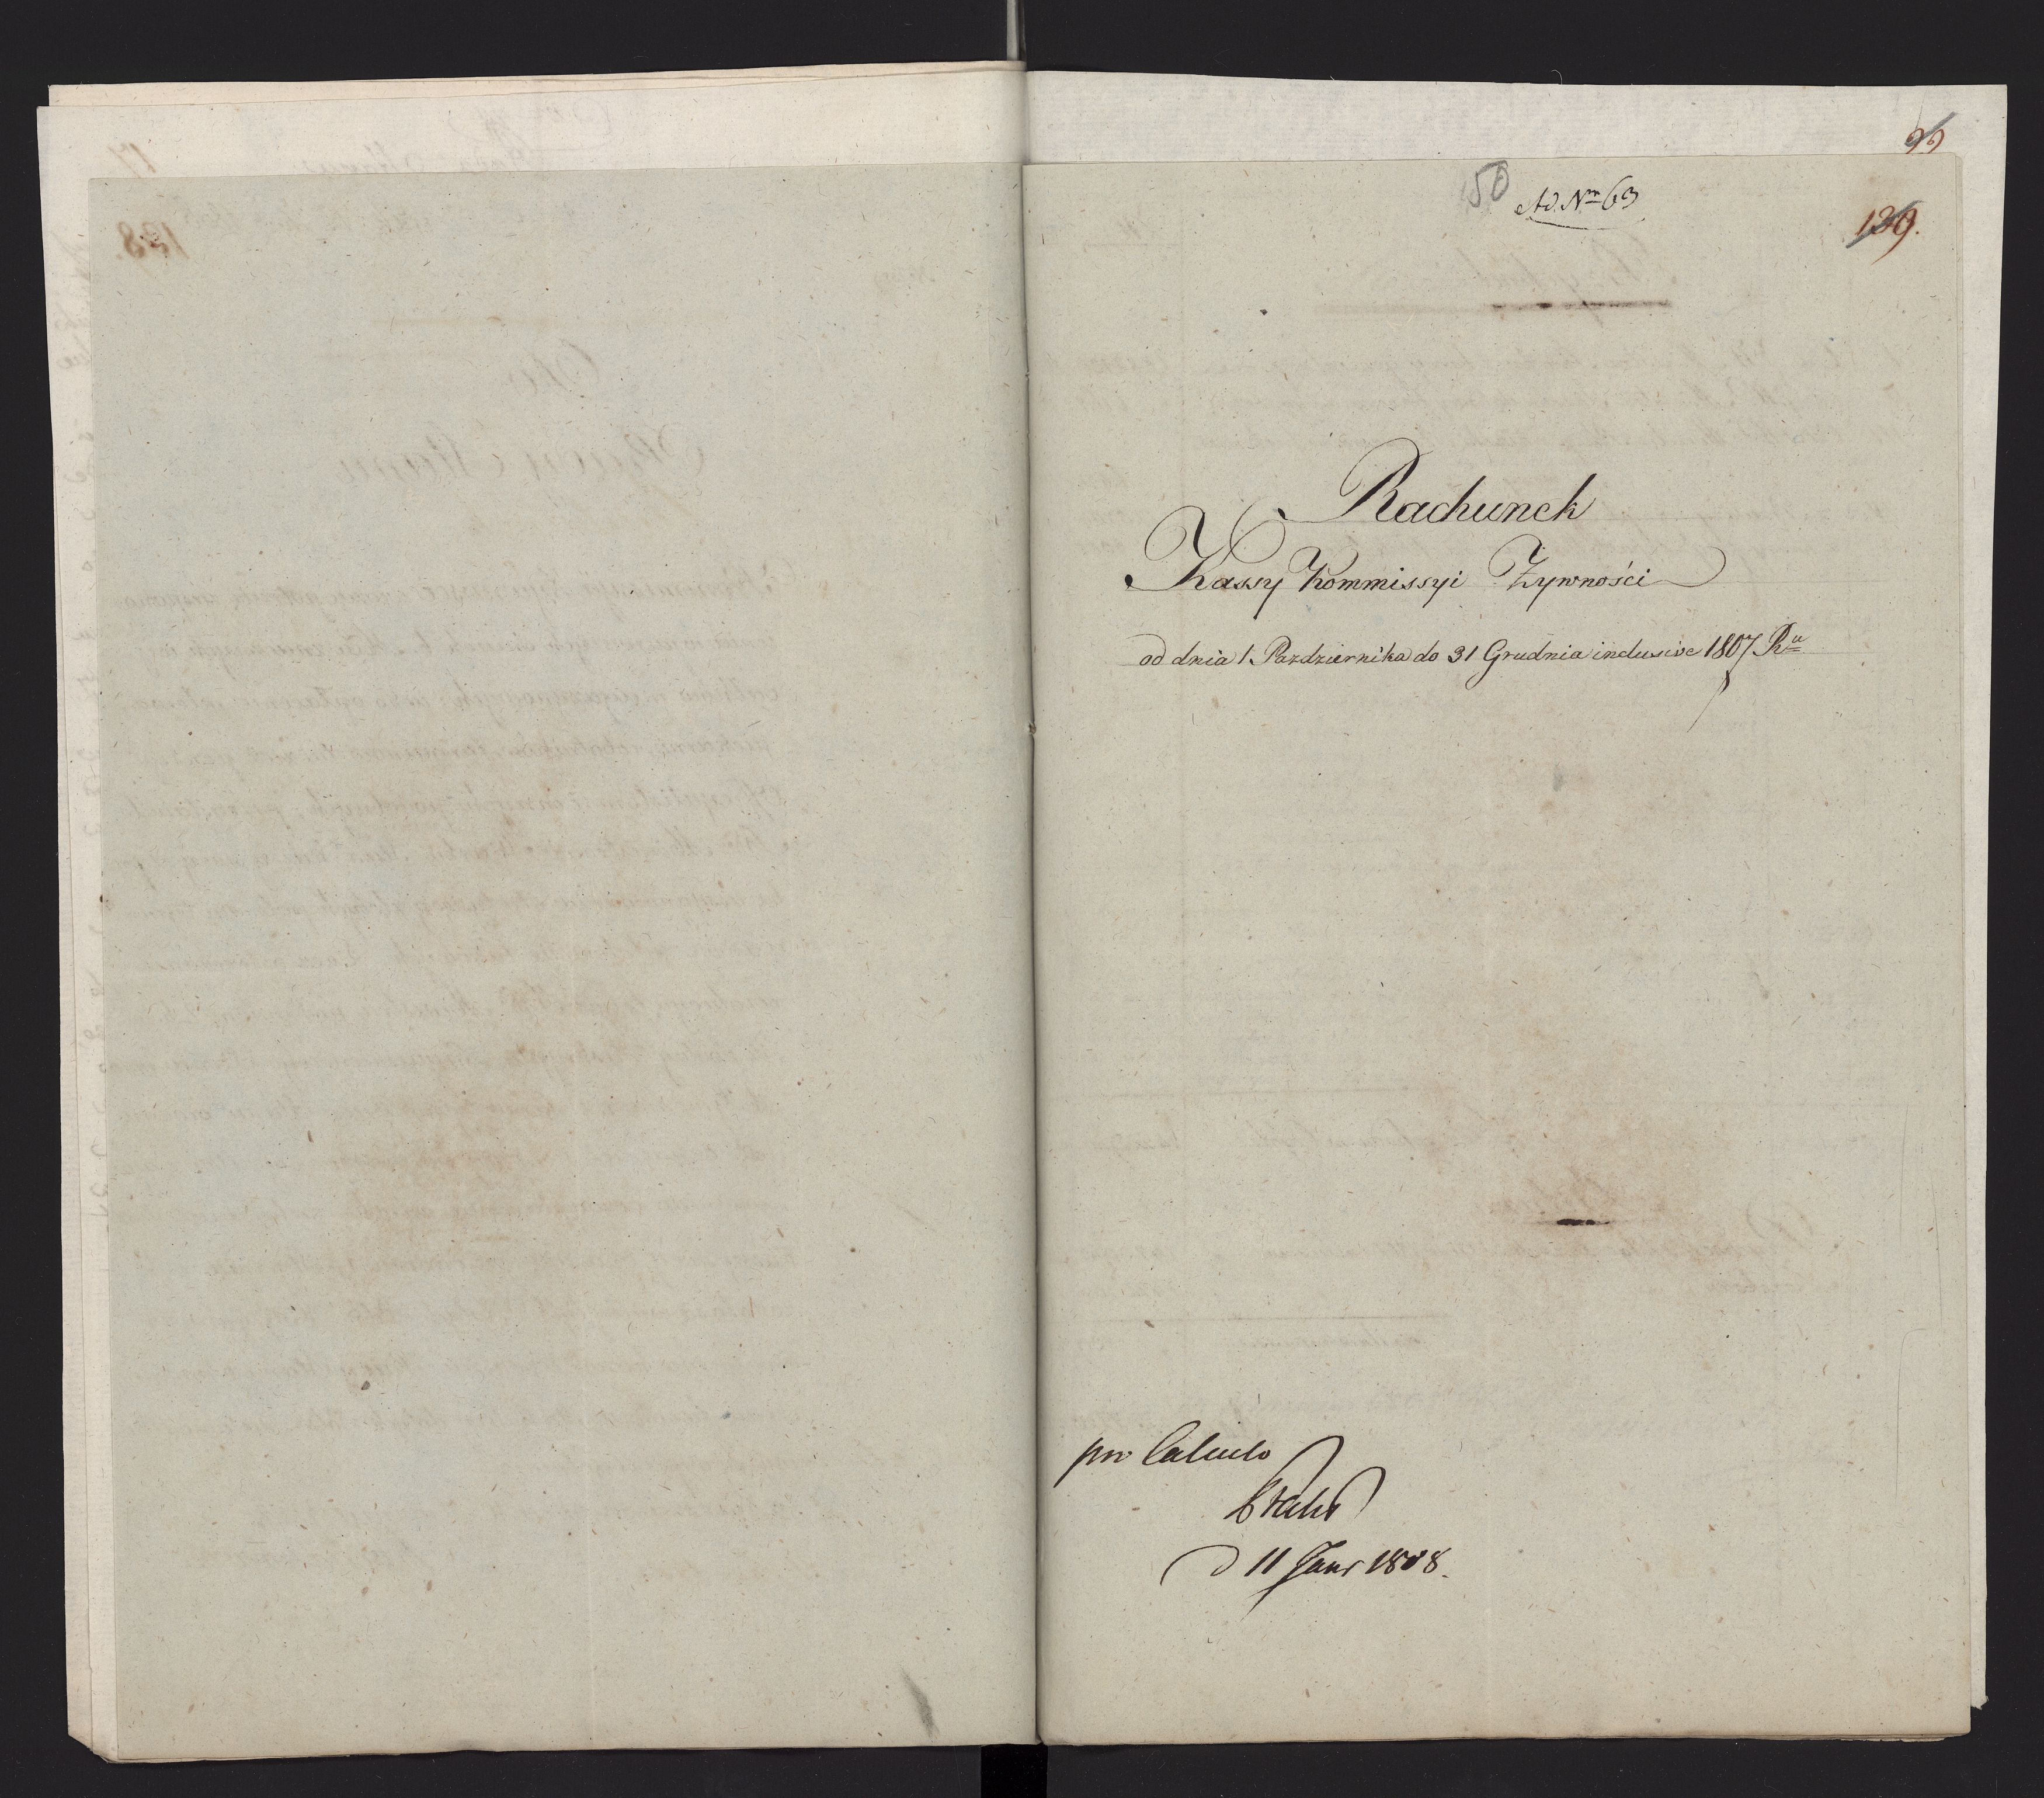 99
150
Ad. Nm 63
139.
Rachunek
Kassy Kommissyi Żywności
od dnia 1. Pazdziernika do 31 Grudnia inclusive 1807 Ru
pro Calculo
d 11 Janr 1808.